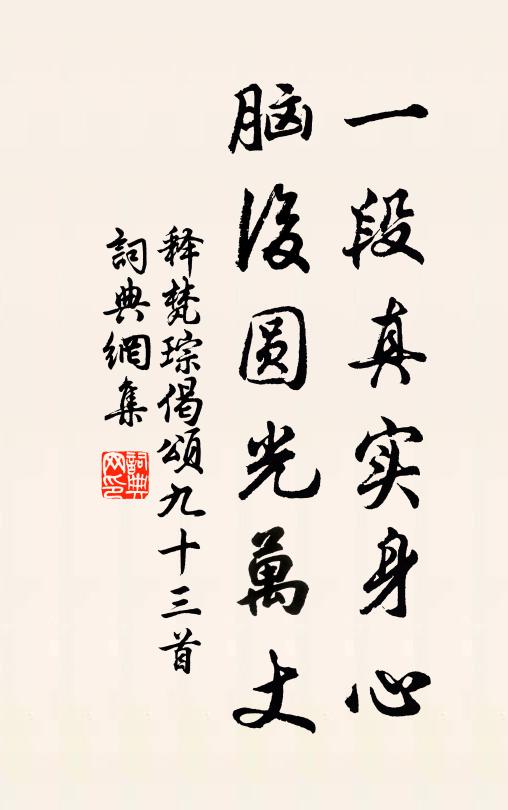 一段真实身心
脑後圆光萬丈
释梵琮偈頌九十三首
詞典網集
詞典网印